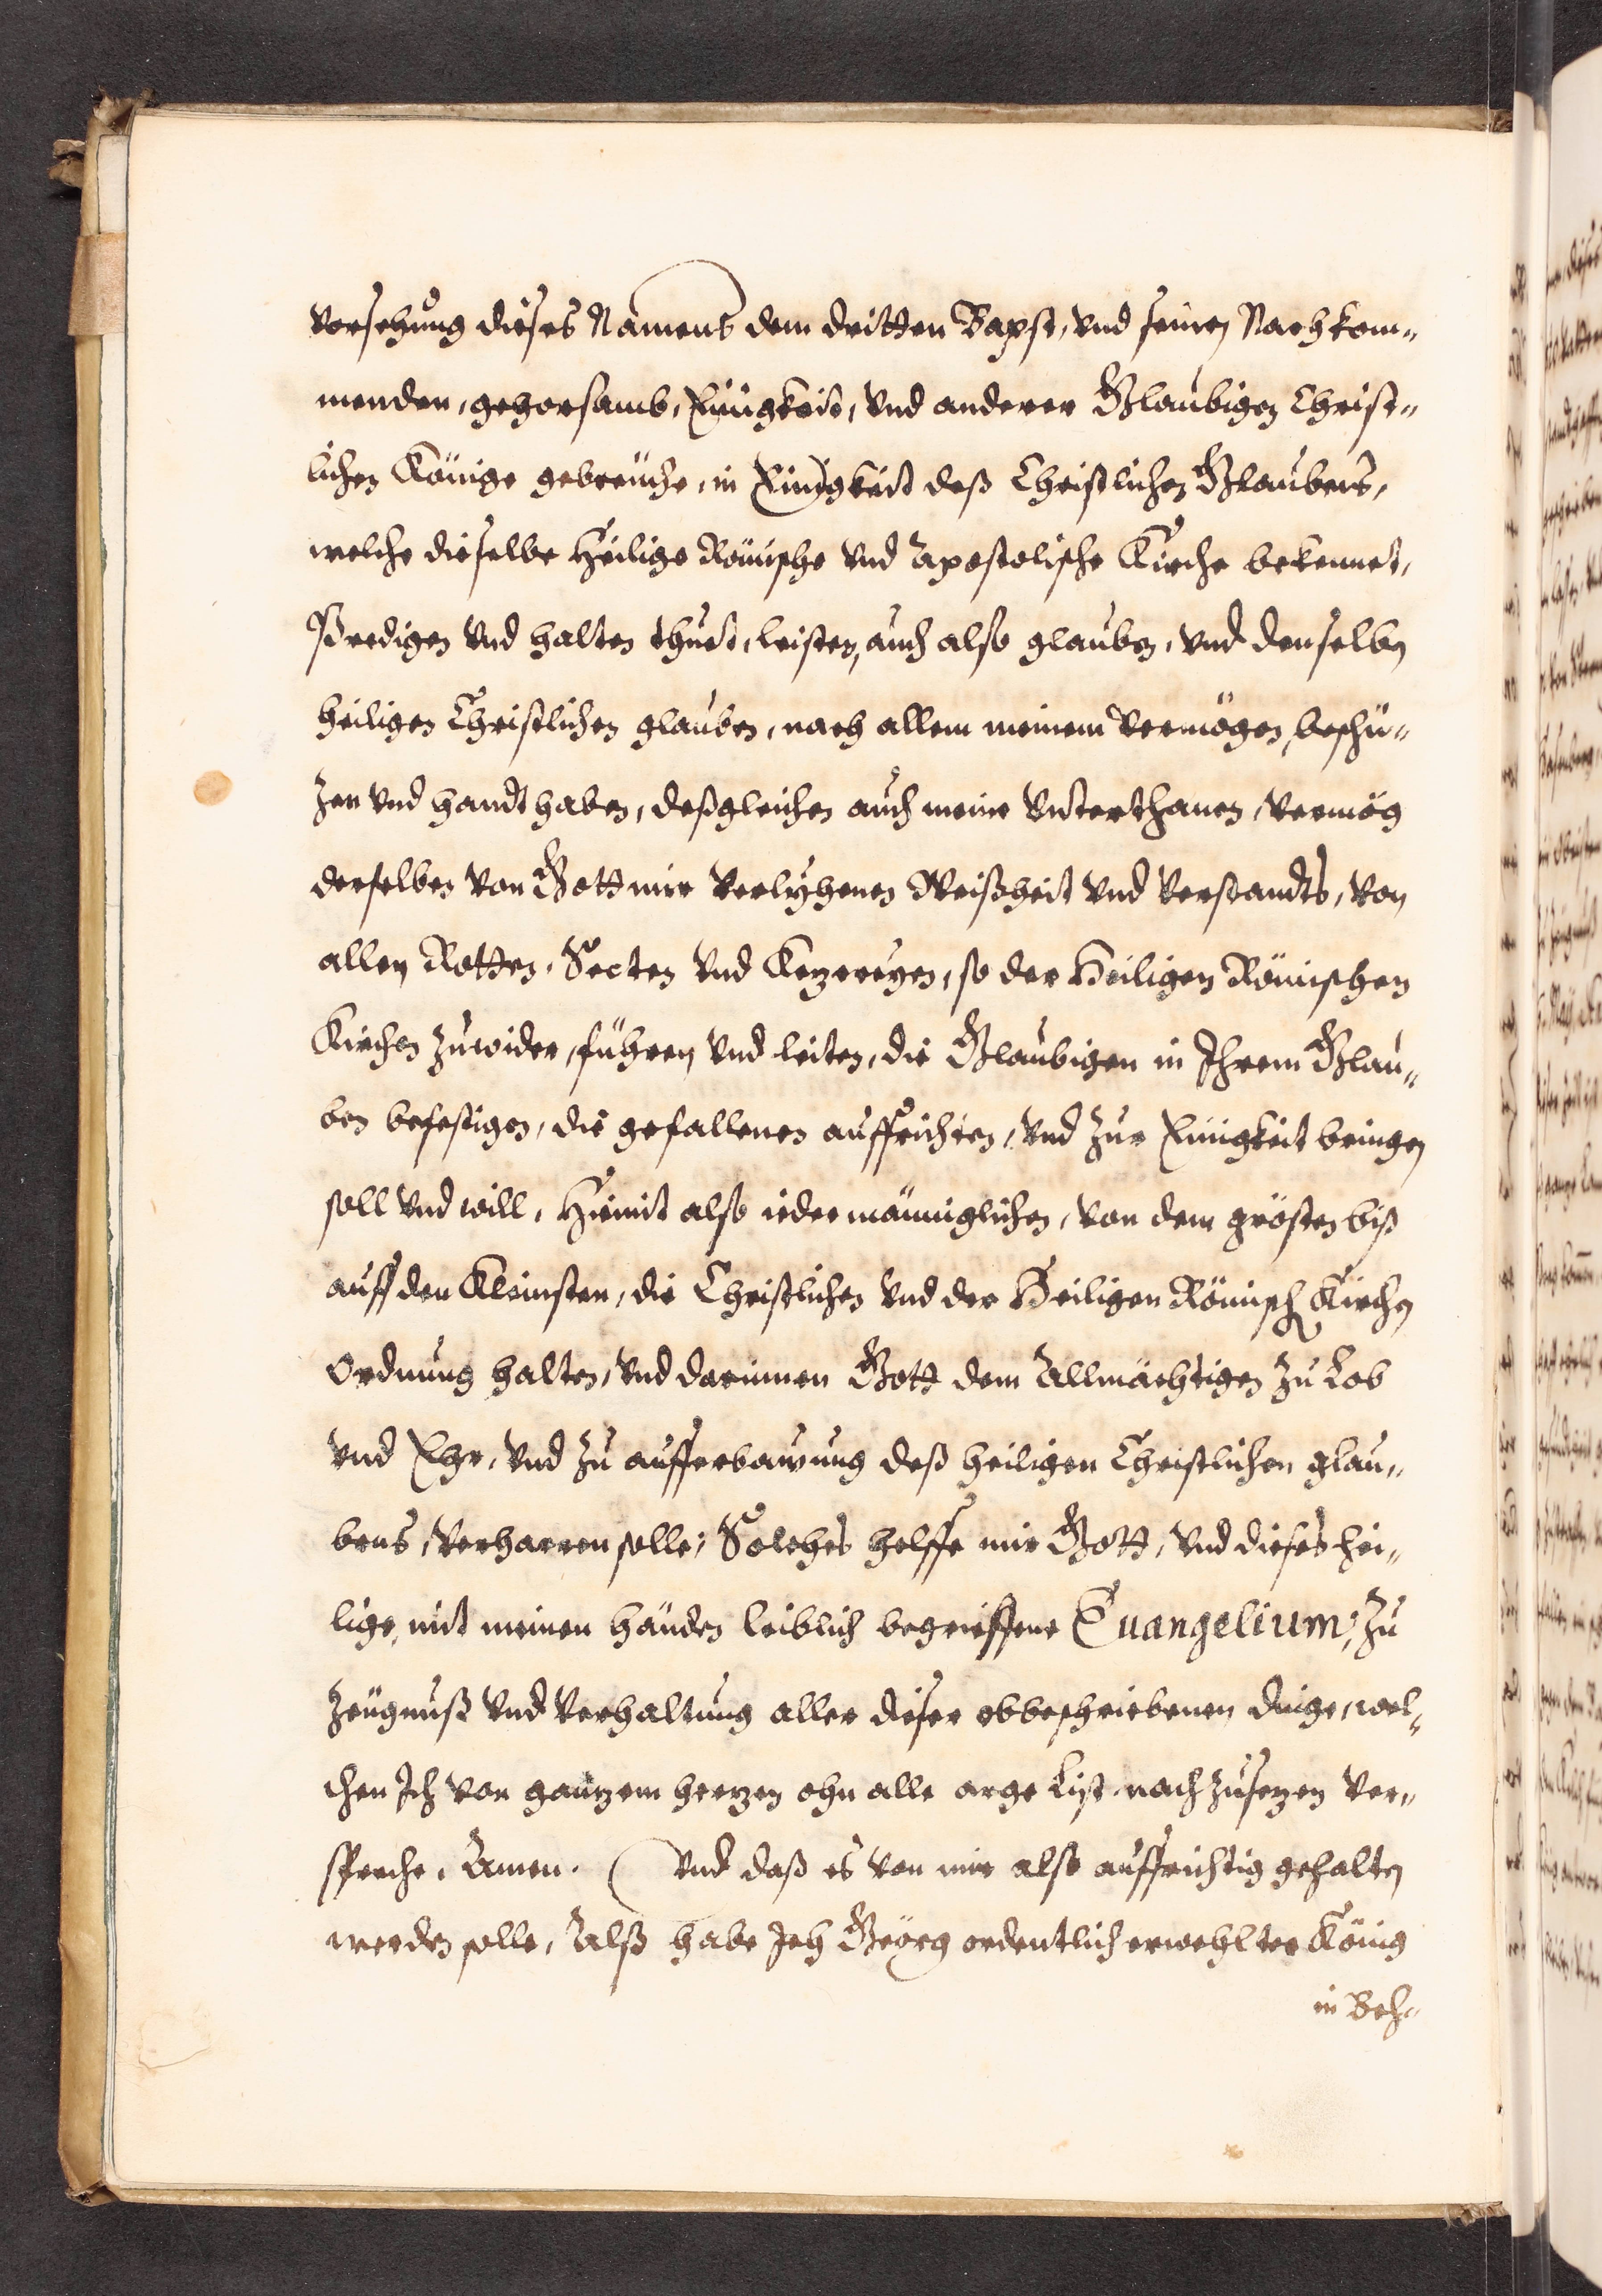 vorsehung dieses Namens dem dritten Bapst, vnd seinen Nachkom„
menden, gehorsamb, Einigkeit, vnd anderer Glaubigen Christ„
lichen Könige gebreüche, in Einigkeit deß Christlichen Glaubens,
welche dieselbe Heilige Römische vnd Apostolische Kirche bekennet,
Predigen vnd halten thuet, leisten, auch also glauben, vnd denselben
heiligen Christlichen glauben, nach allem meinem Vermögen, beschü„
zen vnd handthaben, deßgleichen auch meine Vnterthanen, vermög
derselben von Gott mir verlyhenen Weißheit vnd Verstandts, von
allen Rotten, Secten vnd Kezereyen, so der Heiligen Römischen
Kirchen zuwider, führen vnd leiten, die Glaubigen in Ihrem Glau„
ben befestigen, die gefallenen auffrichten, vnd zur Einigkeit bringen
soll vnd will, Hiemit also iedermänniglichen, von dem grösten biß
auff den Kleinsten, die Christlichen vnd der Heiligen Römisch Kirchen
Ordnung halten, vnd darinnen Gott dem Allmächtigen zu Lob
vnd Ehr, vnd zu aufferbawung deß heiligen Christlichen glau„
bens, verharren solle, Solches helffe mir Gott, vnd dieses hei„
lige, mit meinen händen leiblich begrieffene Euangelium, zu
Zeügnuß vnd Verhaltung aller dieser obbeschriebenen dinge, wel„
chen Ich von ganzem herzen ohn alle arge List nachzusezen ver„
spreche. Amen. Vnd daß es von mir also auffrichtig gehalten
werden solle, Alß habe Ich Geörg ordentlich erwehlter König
in Beh„